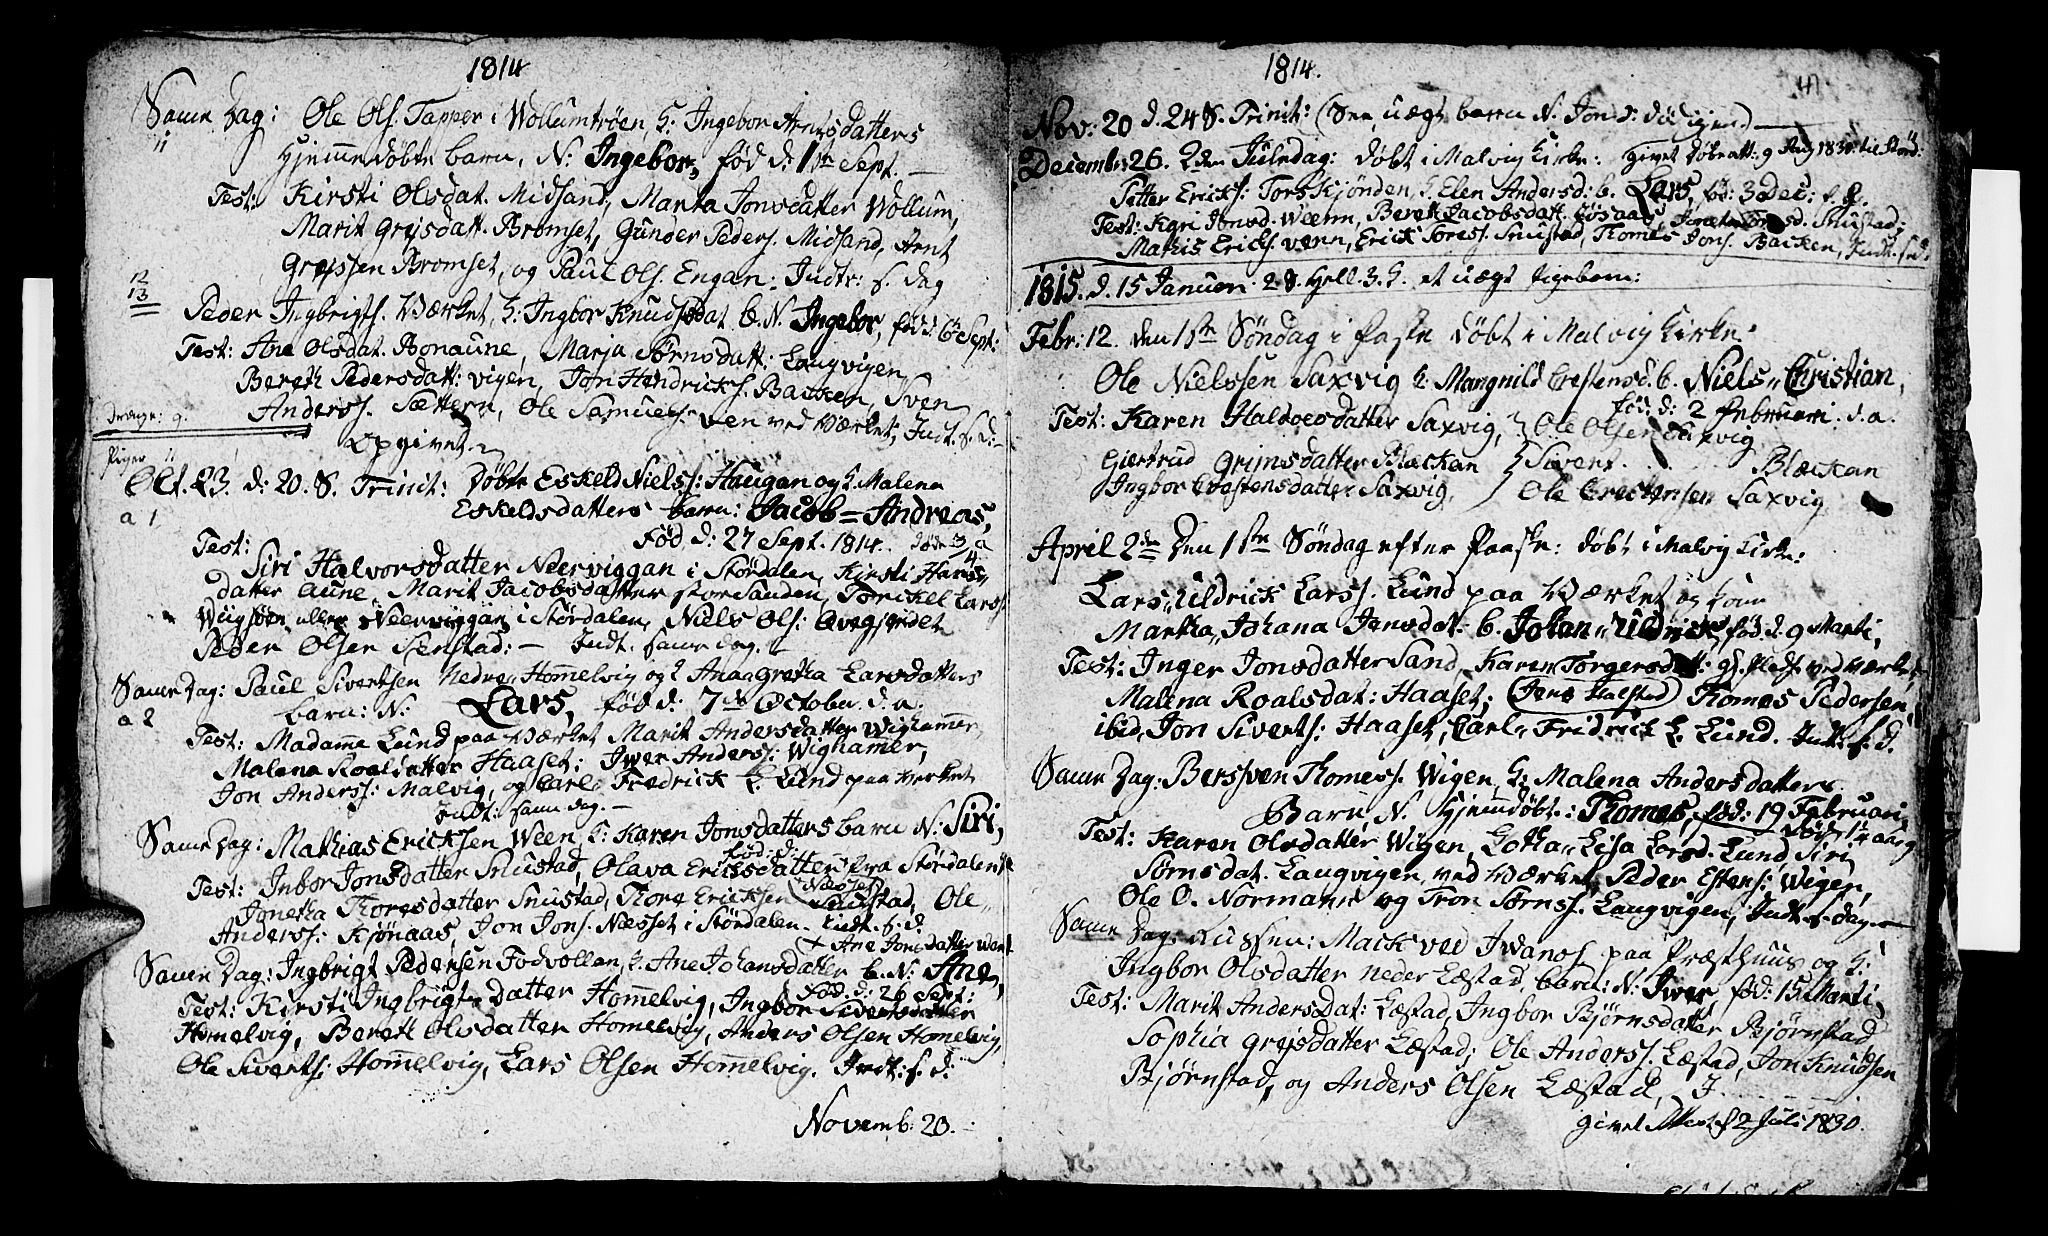 1814
Same Dag: Ole Ols. Tapper i Wollumtrøen H: Ingebor Arntsdatters
11
Hjemmedøbte barn, N: Ingebor, fød d: 1ste Sept.
Test: Kirsti Olsdat. Midsand, Marta Jonsdatter Wollum,
Marit Grejsdatt. Bromset, Gunder Peders. Midsand, Arnt
Grejssen Bromset, og Paul Ols. Engan: Indtr: s. dag
12
13
Peder Ingbrigts. Værket, H: Ingbor Knudsdat b. N. Ingebor, fød d. 6 Sept:
Test: Ane Olsdat. Bonaune, Marja Sørnsdatt: Laugvigen,
Bereth Pedersdatt: vigen, Jon Hendricks. Backen, Sven
Anderss. Sættern, Ole Samuels. ven ved Værket, Indt. s. d:
Drenge: 9.
Opgivet
Piger 11
Oct. 23. d: 20. S. Trinit: Døbte Eskeld Niels: Haugan og H. Malena
a 1
Eskeldsdatters barn: Jacob = Andreas,
fød d: 27 Sept. 1814.
Test:
Siri Halvorsdatter Neerviggan i Størdalen, Kirsti Hans
datter Aune, Marit Jacobsdatter storsanden, Torickel Larss.
eller Neerviggan i Størdalen, Niels Ols:
Peder Olsen Senstad: – Indt. same dag. –
Same Dag: Paul Sivertsen Nedre Hommelvig og H Anna Gretha Larsdatters
a 2
barn: N: Lars, fød d: 7de Octobr. d. a.
Test: Madamme Lund paa Værket Marit Andersdatter Wighammer,
Malena Roalsdatter Haaset: Iwer Anderss: Wighamer,
Jon Anderss: Malvig, og Carl Fredrick L. Lund paa Verket
Indt: same dag. –
Same Dag: Mathias Ericksen Ween, H: Karen Jonsdatters barn N: Siri,
fød: d:
Test: Inbor Jonsdatter Snustad, Olava Ericksdatter fra Størdalen
Jonetha Thoresdatter Snustad, Thore Ericksen Snustad, Ole
Næsset
Anderss: Kjønaas, Jon Jons. Næsset i Størdalen. Indt. s. d.
+ Ane Jonsdatter
Same Dag: Ingbrigt Pedersen Fodvollen, H. Ane Johansdatter b. N: Ane,
fød. d: 26 Sept:
Test: Kirsti Ingbrigts Datter Hommelvig, Ingbor Sivertsdatter
Homelvig, Bereth Olsdatter Homelvig, Anders Olsen Homelvig,
Ole Siverts: Hommelvig, Lars Olsen Hommelvig. Indt: s. d:
Novemb: 20.
1814.
Nov: 20 d. 24 S. Trinit: (See uægt barn N. Jon
Decemb: 26. 2den Juledag: døbt i Malvig Kirke: givet Døbeatt: 9 Aug 1830 til Størd:
Petter Ericks: Torskjønden, H Elen Andersd: b. Lars, fød: 3 Dec: d. a.
Test: Kari Jonsd. Weenn, Bereth Jacobsdatt. Snustad,
Mathis Ericks. venn, Erick Tores. Snustad, Thomes Jons. Backen, Indt. s. d.
1815. d. 15 Januari. 2 S. Hell. 3. K. et uægt Pigebarn:
Febr: 12. den 1ste Søndag i Faste døbt i Malvig Kirke:
Ole Nielssen Saxvig H: Mangnild Crestensd b. Niels Christian,
fød: d: 2 Februari. d. a.
Test: Karen Haldorsdatter Saxvig, Ole Olsen Saxvig
Giertrud Grimsdatter Blæckan Sivert Blæckan
Ingbor Crestensdatter Saxvig, Ole Crestensen Saxvig
April 2den Den 1ste Søndag efter Paaske: døbt i Malvig Kirke:
Lars Uldrick Larss. Lund paa Værket og Kone
Martha Johana Jensdat: b. Johan Uldrick, fød d. 9 Marti,
Test: Inger Jonsdatter Sand, Karen Torgersdatt: ved Værket,
Malena Roalsdat: Haaset; (Jens Halstad) Thomes Pedersen
ibid, Jon Siverts: Haaset, Carl Fridrick L. Lund. Indt: s. d.
Same Dag: Berssven Thomess. Wigen, H: Malena Andersdatters
Barn N. Hjemmdøbt: Thomes, fød: 19 Februari,
Test: Karen Olsdatter Wigen, Lotta Lisa Larsd. Lund, Siri
Sørnsdat. Laugvigen, ved Værket, Peder Estens: Wigen,
Ole O. Normann og Tron Sørnss. Laugvigen, Indt s. dag.
Same Dag: Russen: Mack ved Iwanof paa Præsthuus og H:
Ingbor Olsdatter neder Læstad, barn: N: Iwer, fød: 15 Marti,
Test: Marit Andersdat: Læstad, Ingbor Bjørnsdatter Bjørnstad
Sophia Grejsdatter Læstad; Ole Anderss. Læstad, Jon Knudsen
Bjørnstad, og Anders Olsen Læstad, I
givet Attest d 2 Juli 1830.